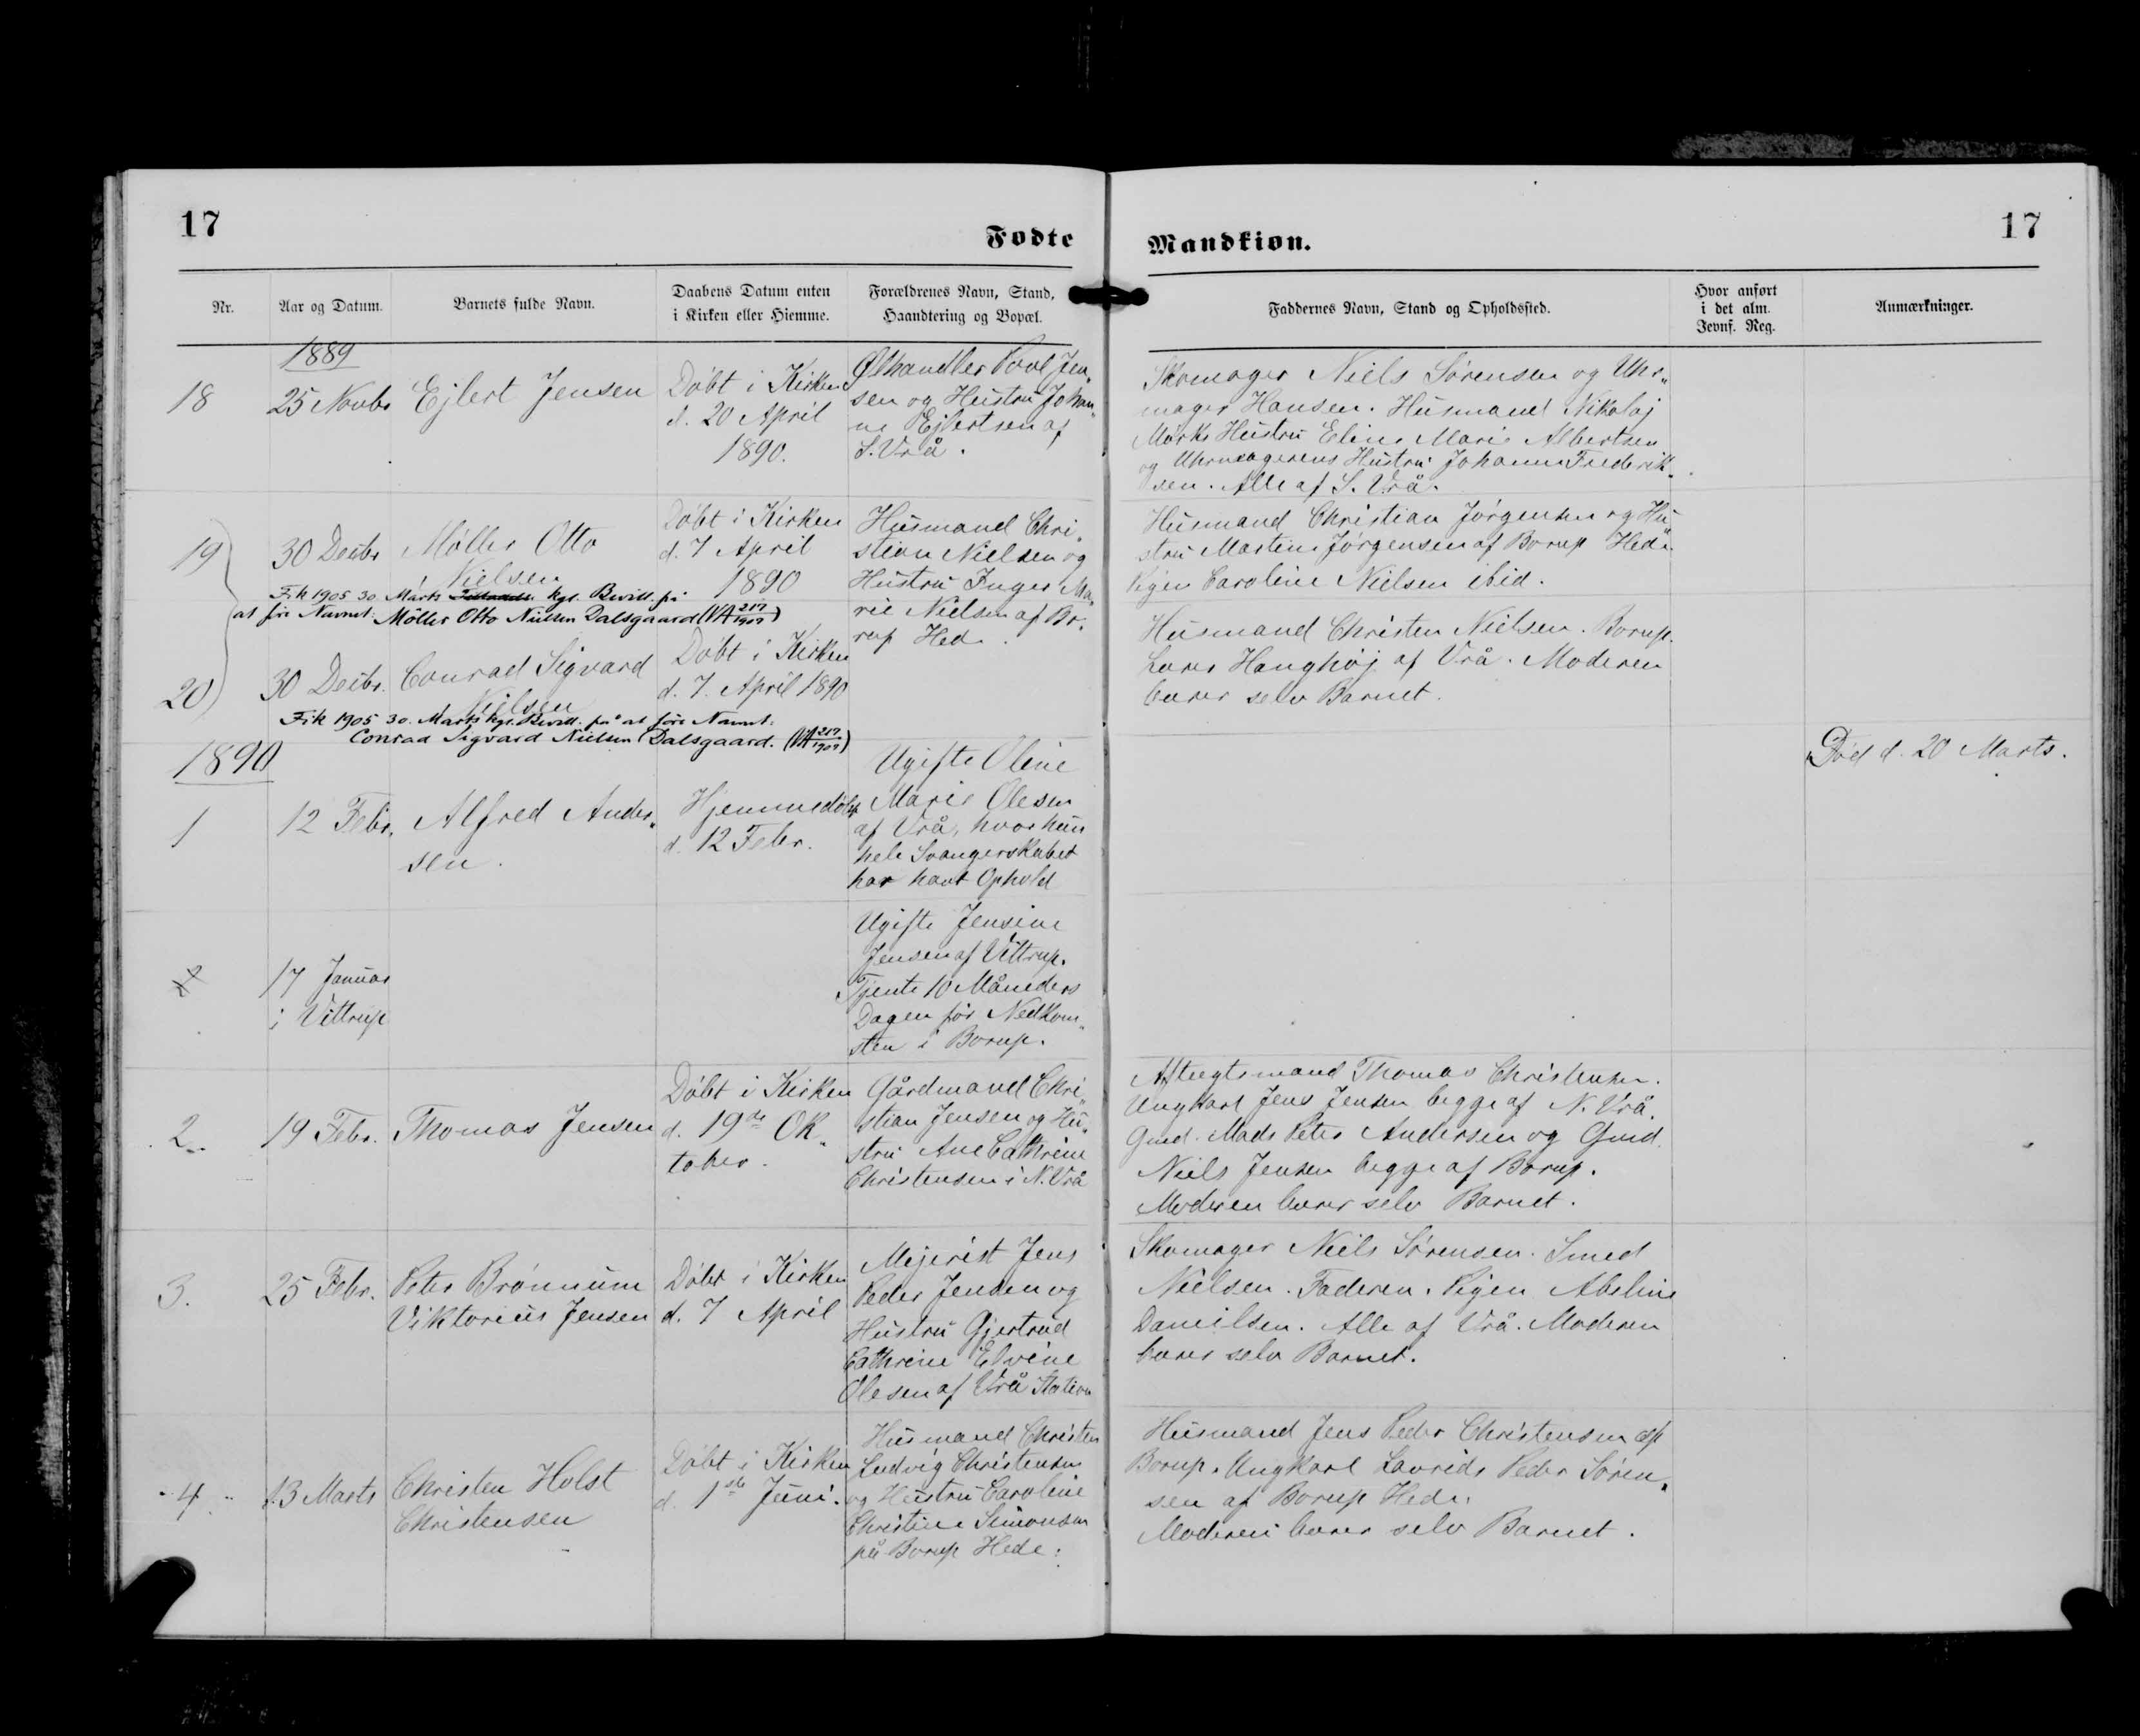 17
Fødte
Mandkiøn.
17
Nr.
Aar og Datum.
Barnets fulde Navn.
Daabens Datum enten
i Kirken eller Hiemme.
Forældrenes Navn, Stand,
Haandtering og Bopæl.
Faddernes Navn, Stand og Opholdssted.
Hvor anført
i det alm.
Jevnf. Reg.
Anmærkninger.
1889
18
25 Novbr
Ejlert Jensen
Døbt i Kirken
d. 20 April
1890.
Ølhandler Povl Jen„
sen og Hustru Johan„
ne Ejlertsen af
S. Vrå.
Skomager Niels Sørensen og Uhr„
mager Hansen. Husmand Nikolaj
Mørks Hustru Eline Marie Albertsen
og Uhrmagerens Hustru Johanne Frederik„
sen. Alle af S. Vrå.
19
30 Decbr
Møller Otto
Nielsen
Døbt i Kirken
d. 7 April
1890
Husmand Chri„
stian Nielsen og
Hustru Inger Ma„
rie Nielsen af Bo„
rup Hede.
Husmand Christian Jørgensen og Hu„
stru Martine Jørgensen af Borup Hede.
Pigen Caroline Nielsen ibid.
Fik 1905 30 Marts kgl. Bevill. på
at føre Navnet: Møller Otto Nielsen Dalsgaard (VA 217/1907)
20
30 Decbr.
Conrad Sigvard
Nielsen
Døbt i Kirken
d. 7. April 1890
Husmand Christen Nielsen. Borup.
Lars Hanghøj af Vrå. Moderen
bærer selv Barnet.
Fik 1905 30. Marts kgl. Bevill. på at føre Navnet:
Conrad Sigvard Nielsen Dalsgaard. (VA 217/1907)
1890
1
12 Febr.
Alfred Ander„
sen.
Hjemmedøbt
d. 12 Febr.
Ugifte Oline
Marie Olesen
af Vrå, hvor hun
hele Svangerskabet
har havt Ophold
Død d. 20 Marts.
2
17 Januar
i Vittrup
Ugifte Jensine
Jensen af Vittrup.
Tjente 10 Måneders
Dagen før Nedkom„
sten i Borup.
2.
19 Febr.
Thomas Jensen
Døbt i Kirken
d. 19de Ok„
tober.
Gårdmand Chri„
stian Jensen og Hu„
stru Ane Cathrine
Christensen i N. Vrå
Aftægtsmand Thomas Christensen.
Ungkarl Jens Jensen begge af N. Vrå.
Gmd. Mads Peter Andersen og Gmd.
Niels Jensen begge af Borup.
Moderen bærer selv Barnet.
3.
25 Febr.
Peter Brønnum
Viktorius Jensen
Døbt i Kirken
d. 7 April
Mejerist Jens
Peder Jensen og
Hustru Gjertrud
Cathrine Elvine
Olesen af Vrå Station
Skomager Niels Sørensen. Smed
Nielsen. Faderen. Pigen Abeline
Danielsen. Alle af Vrå. Moderen
bærer selv Barnet.
4
13 Marts
Christen Holst
Christensen
Døbt i Kirken
d. 1ste Juni.
Husmand Christen
Ludvig Christensen
og Hustru Caroline
Christine Simonsen
på Borup Hede.
Husmand Jens Peder Christensen af
Borup. Ungkarl Lavrids Peder Søren„
sen af Borup Hede.
Moderen bærer selv Barnet.